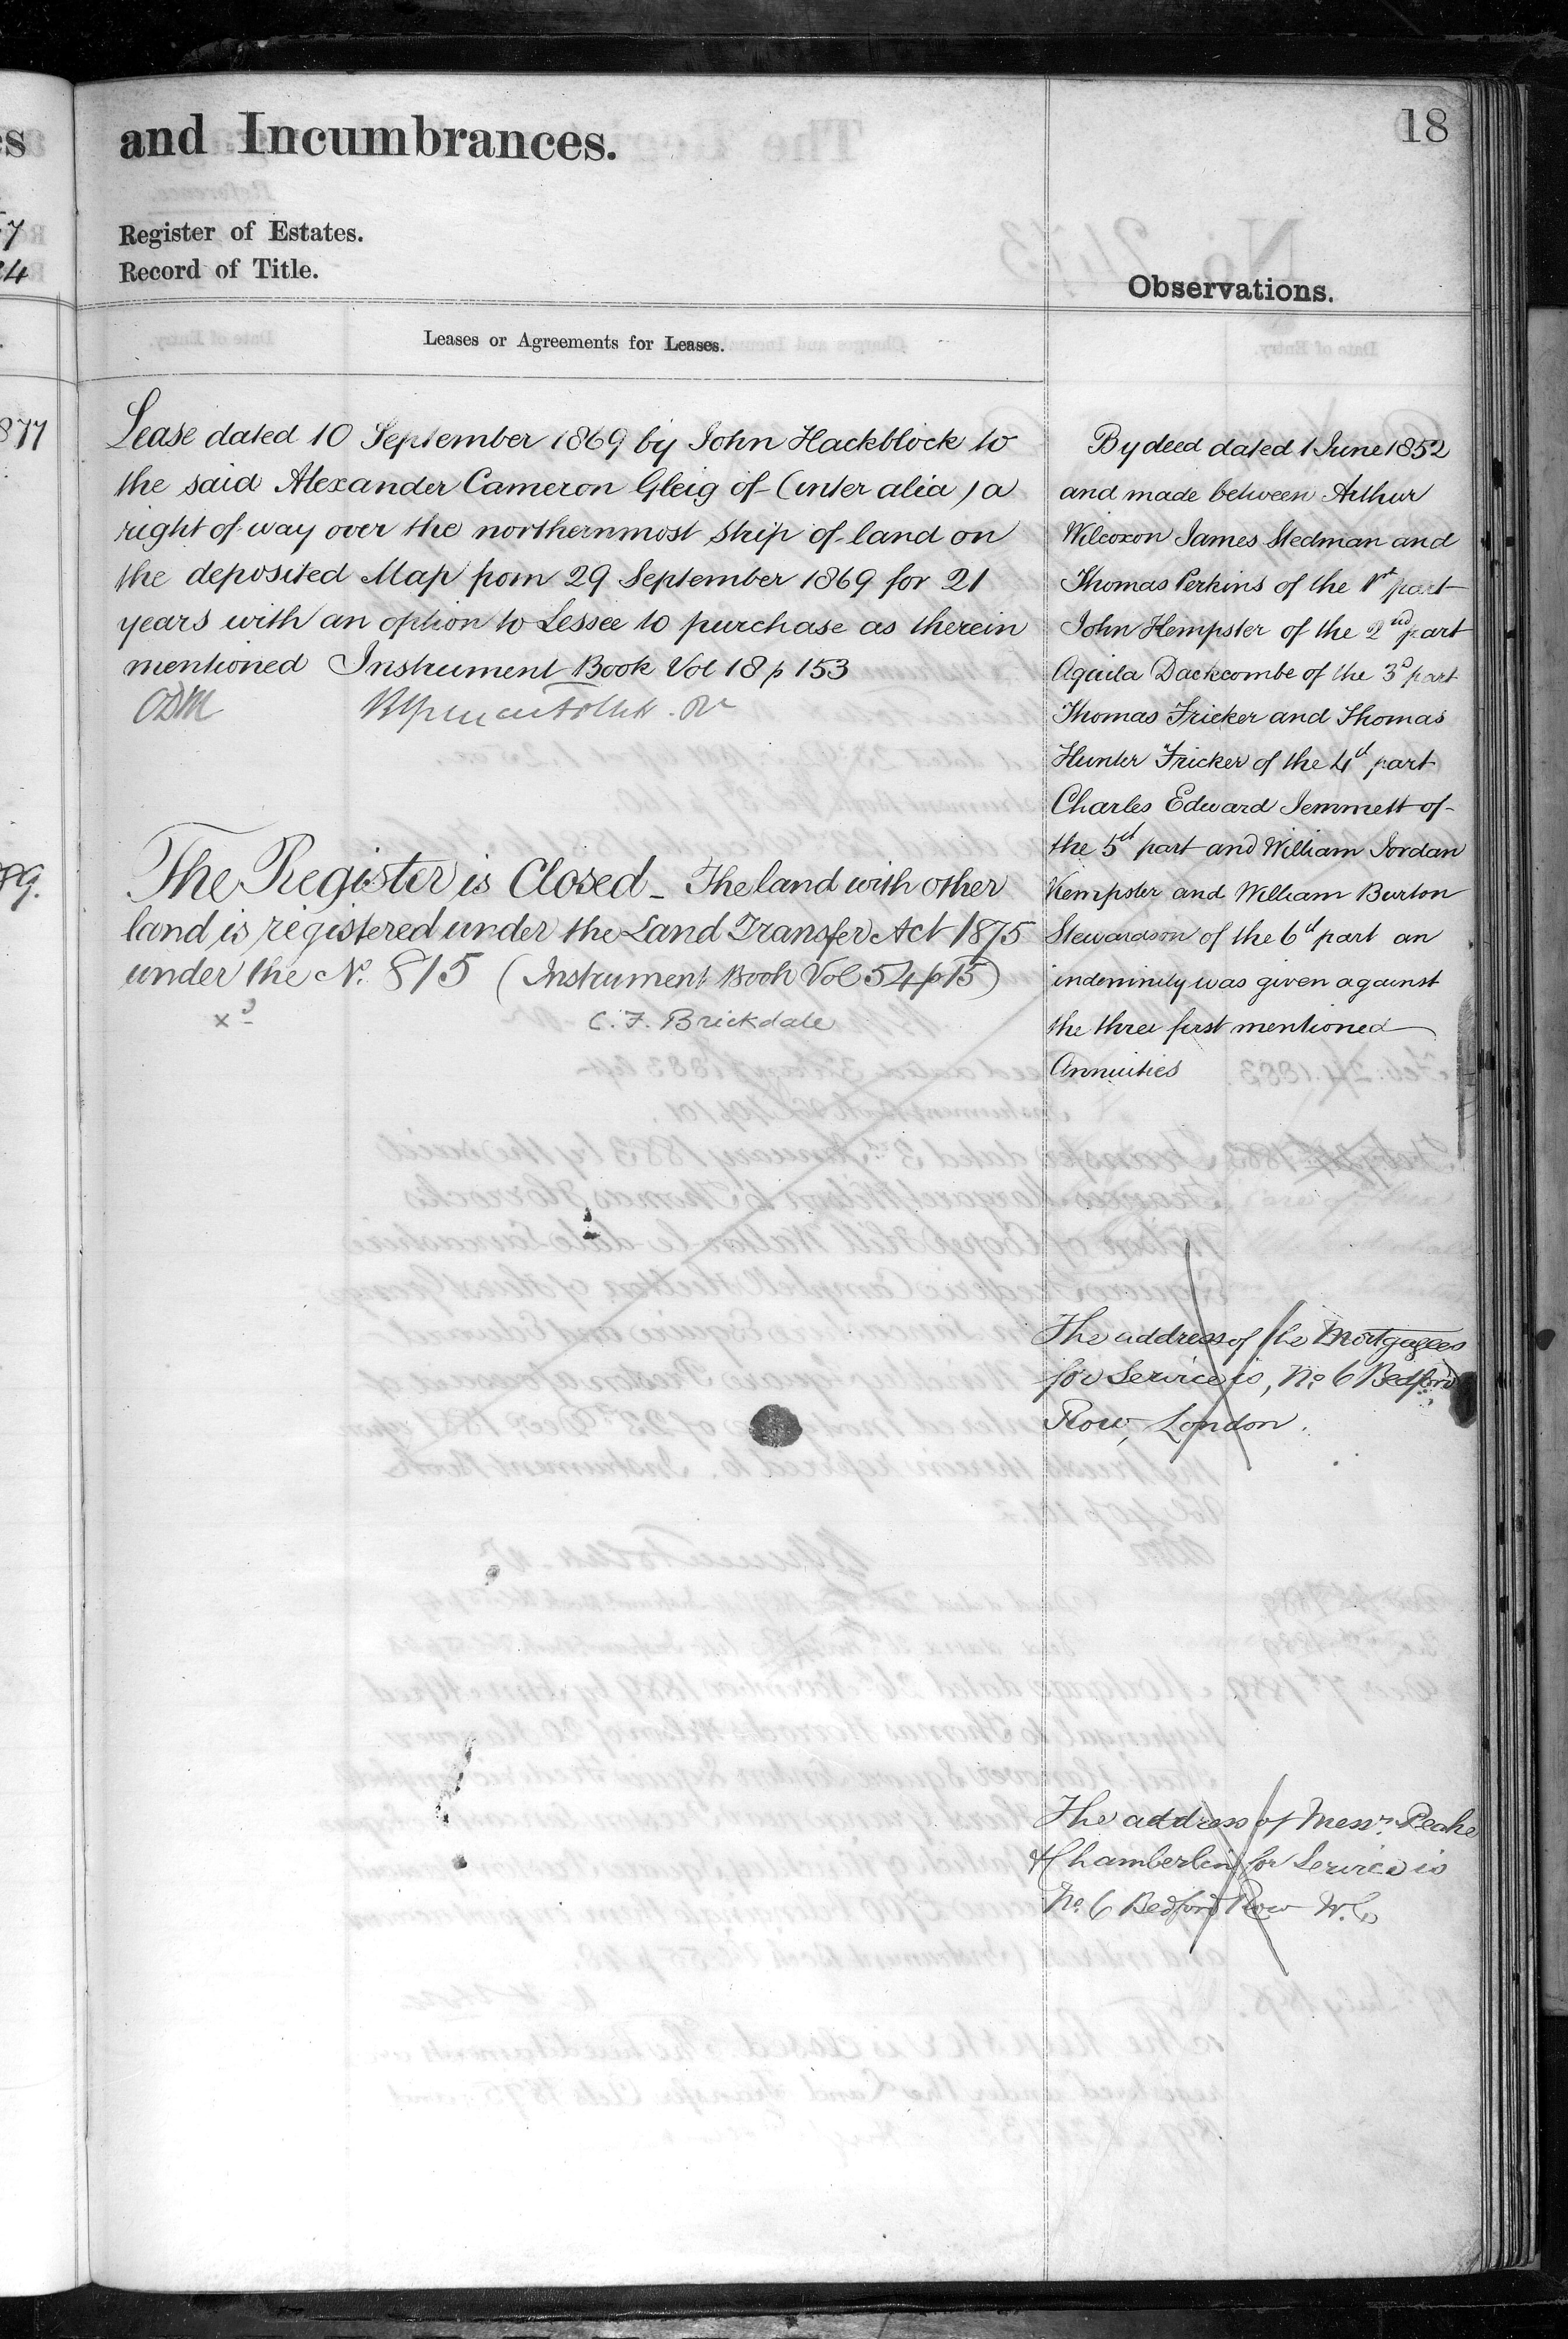 and Incumbrances.
18
Register of Estates.
Record of Title.
Observations.
Leases or Agreements for Leases.
Lease dated 10 September 1869 by John Hackblock to
the said Alexander Cameron Gleig of (inter alia) a
right of way over the northernmost strip of land on
the deposited Map from 29 September 1869 for 21
years with an option to Lessee to purchase as therein
mentioned Instrument Book Vol 18 p 153
The Register is Closed - The land with other
land is registered under the Land Transfer Act 1875
under the No. 815 (Instrument Book Vol 54 p 15)
C. F. Brickdale
By deed dated 1 June 1852
and made between Arthur
Wilcoxon James Stedman and
Thomas Perkins of the 1st part
John Hempster of the 2nd part
Aquila Dackcombe of the 3d part
Thomas Fricker and Thomas
Hunter Fricker of the 4th part
Charles Edward Jemmett of
the 5th part and William Jordan
Kempster and William Burton
Stewardson of the 6th part an
indemnity was given against
the three first mentioned
Annuities
The address of the Mortgagees
for Service is, No. 6 Bedford
Row, London.
The address of Messrs. Peake
& Chamberlin for Service is
No. 6 Bedford Row W.C.
es
7
24
877
89.